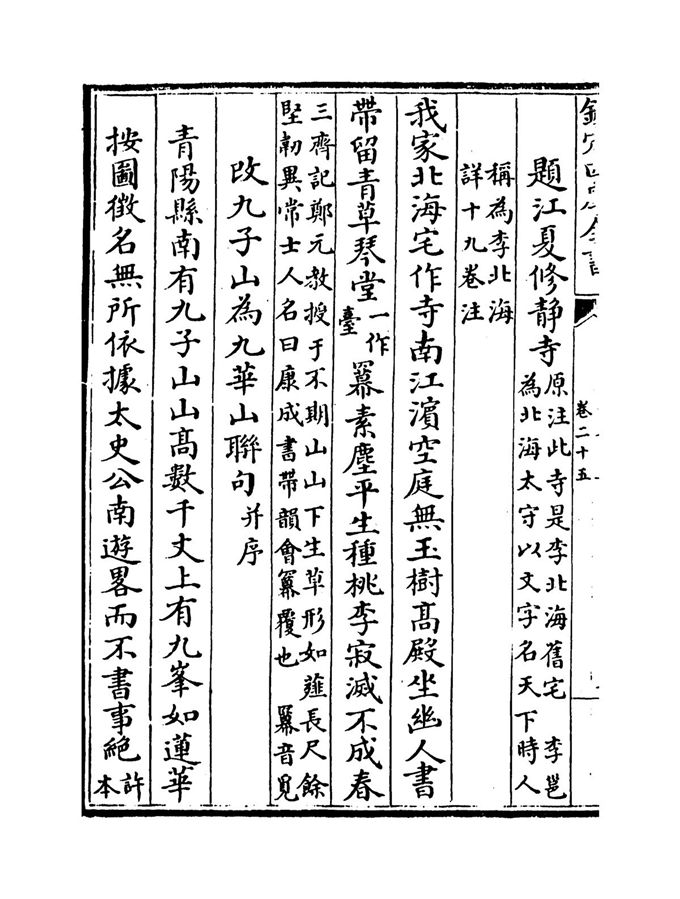 卷二十五
題江夏修静寺原注此寺是李北海舊宅 李邕
為北海太守以文字名天下時人
稱為李北海
詳十九卷注
我家北海宅作寺南江濱空庭無玉樹髙殿坐幽人書
帶留青草琴堂一作
臺 羃素塵平生種桃李寂滅不成春
三齊記鄭元教授于不期山山下生草形如薤長尺餘
堅韌異常士人名曰康成書帶韻會羃覆也 羃音覓
改九子山為九華山聯句并序
青陽縣南有九子山山髙數千丈上有九峯如蓮華
按圖徵名無所依據太史公南遊畧而不書事絶許
本